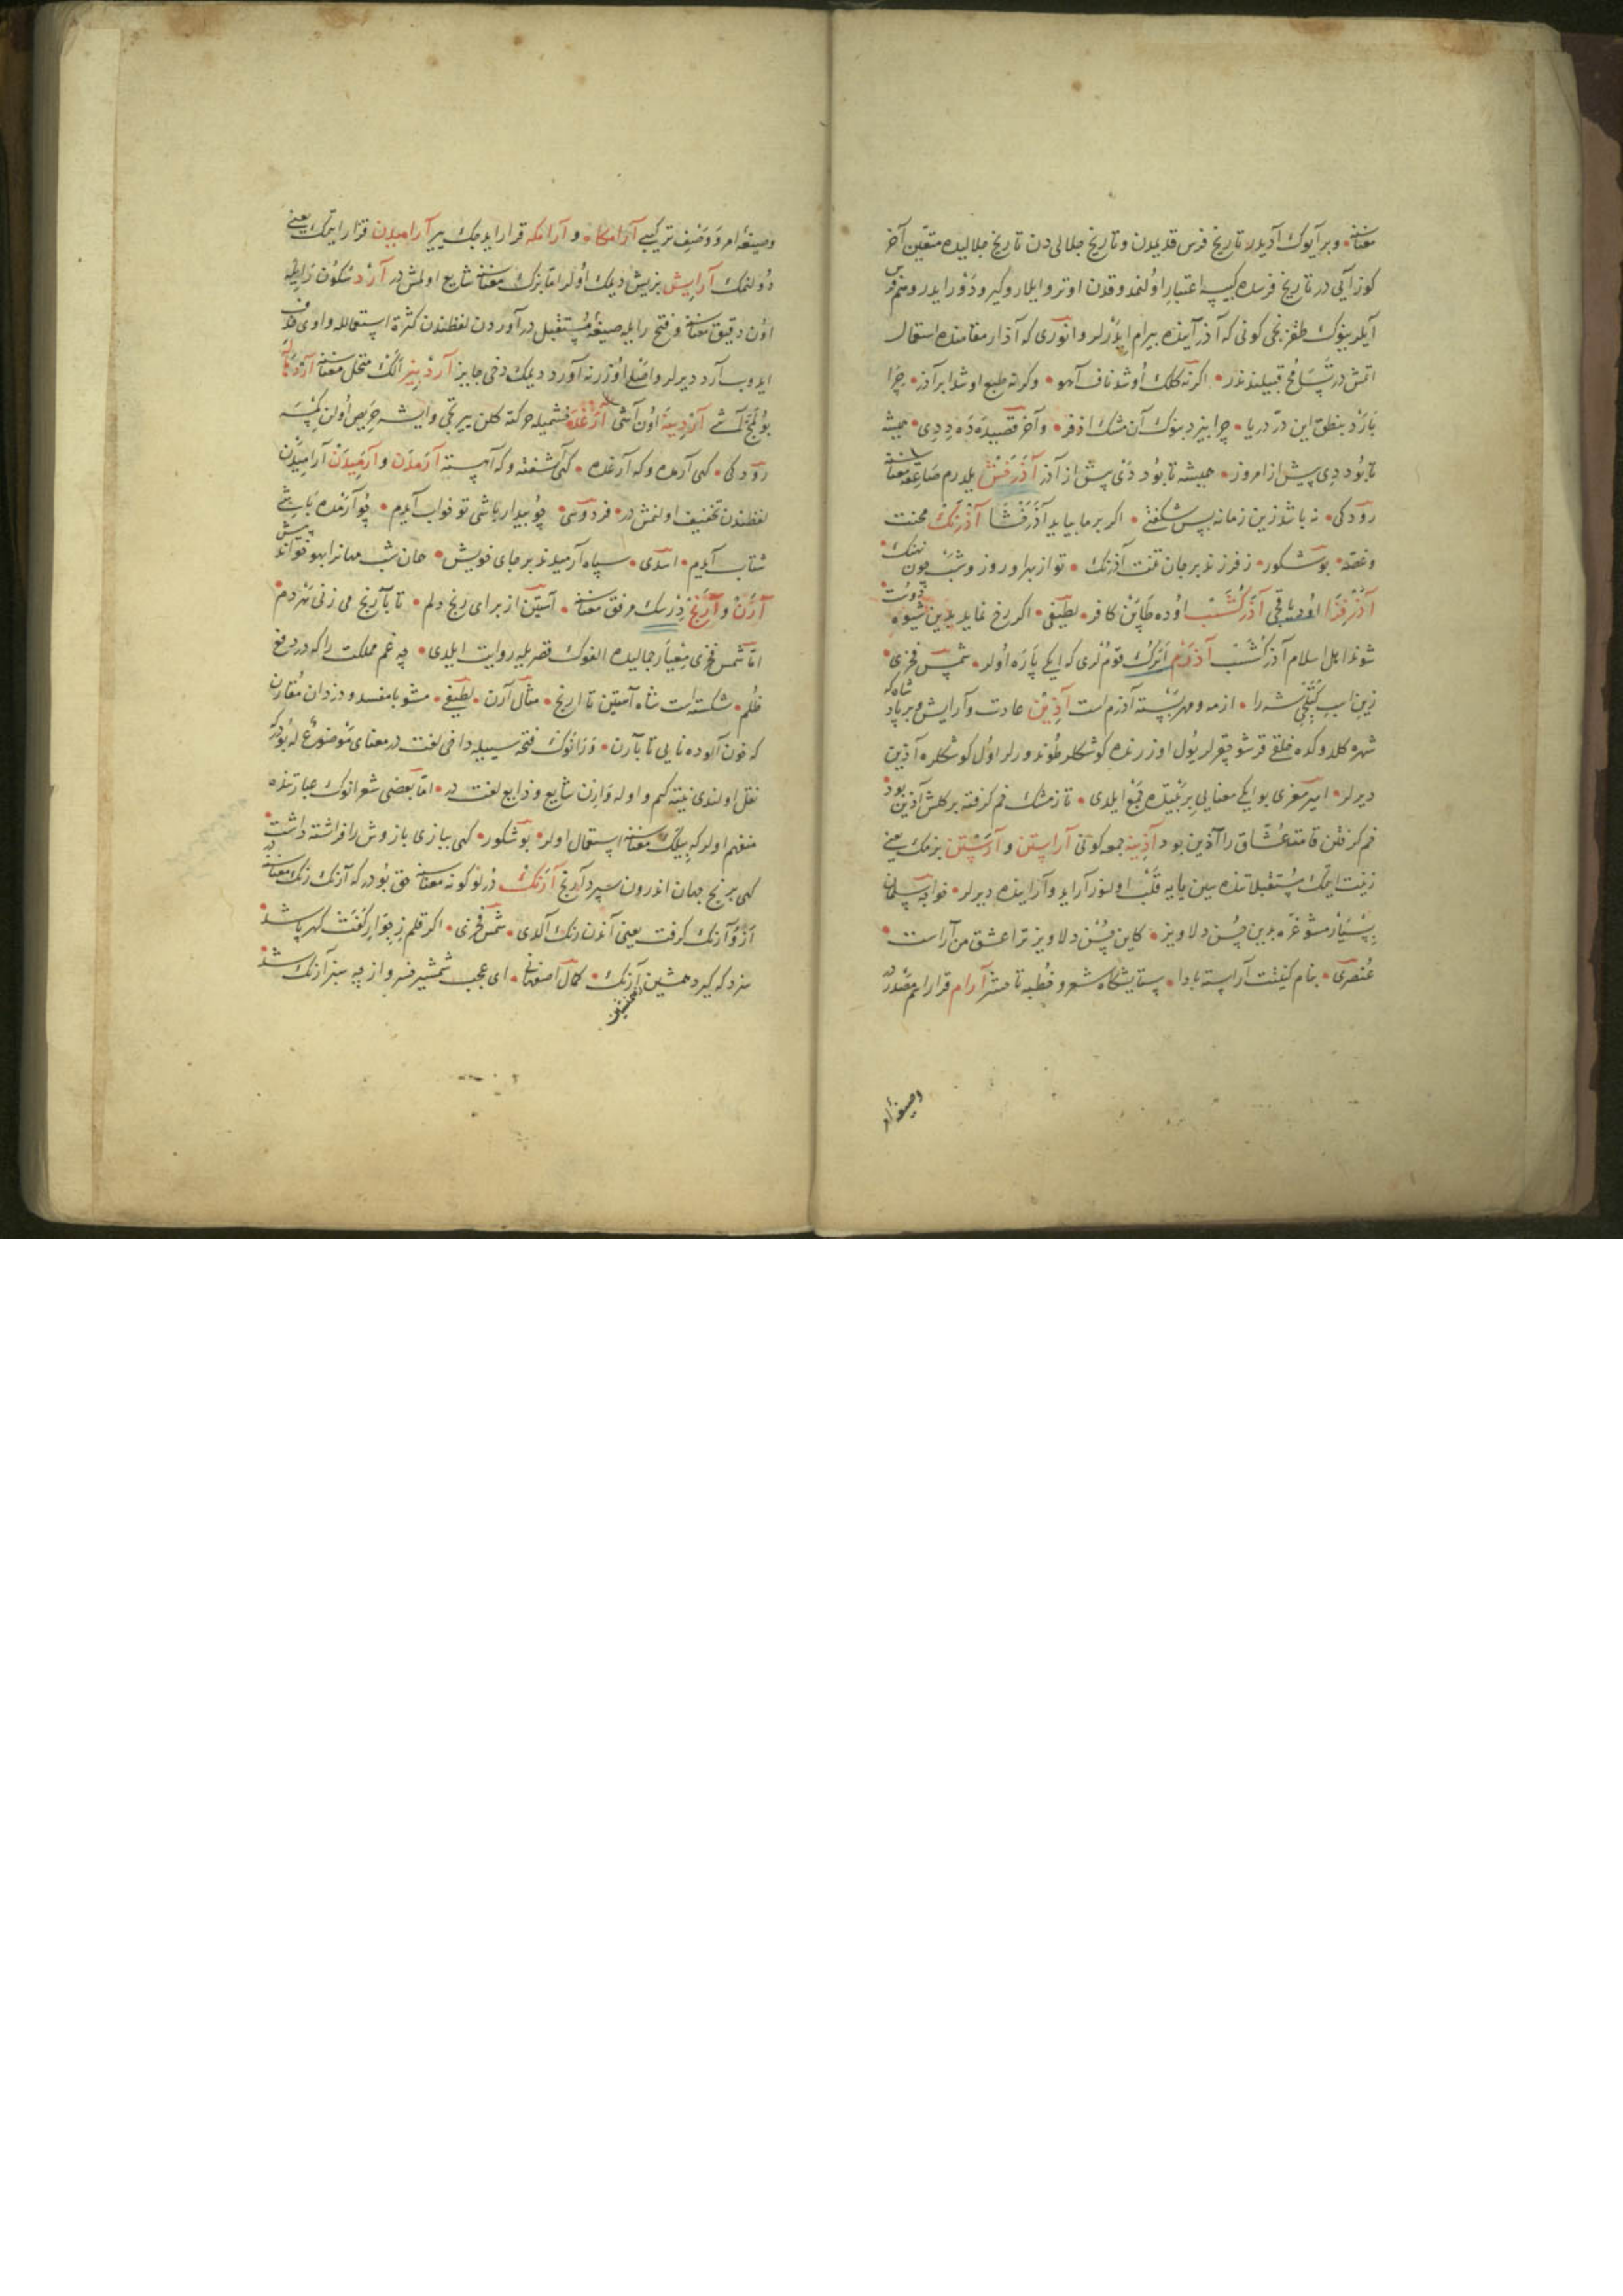 معناسنه • و بر آیوك آدیدر تاریخ فرس قدیمدن و تاریخ جلالی دن تاریخ جلالیده متعین آخر
كوز آیی در تاریخ فرسده كبیسه اعتبار اولنمدوقدن اوترو ایلار و كیرو دور ایدر و هم فرس
آیلرینوك طقزنجی كونی كه آذر آینده بیرام ایدرلر و انوری كه آذار مقامنده استعمال
اتمش در تسامح قبیلندندر • اكرنه كلك اوشد ناف آهو • و كرنه طبع اوشد ابر آذر • چرا
بارد بنطق این در دریا • چرا بیزد بنوك آن مشك اذفر • و آخر قصیده ده دی • همیشه
تا بود دی پیش از امروز • همیشه تا بود دی پیش از آذر آذرخش یلدرم صاعقه معناسنه
رودكی • نه باشد زین زمانه بس شكفتی • اكر بر ما بیاید آذرخشا آذرنك محنت
و غصه • بوشكور • ز فرزند بر جان تنت آذرنك • تو از بهر او روز و شب چون نهنك •
آذرفزا اود یاقیجی آذركشسب اوده طاپن كافر • لطیفی • اكر رخ نماید بدین شیوه دوست
شوند اهل اسلام آذركشسب آذرم اَیَرك قومُلری كه ایكی پاره اولر • شمس فخری •
زین اسب كتخی شه را • از مه و مهر بسته آذرم است آذین عادت و آرایش و بر پادشاه كه
شهره كلدوكده خلقی قرشو چقرلر یول اوزرنده كوشكلر طوندورلر اول كوشكلره آذین
دیرلر • امیر معزی بو ایكی معنایی بر بیتده جمع ایلدی • تا ز مشك خم كرفته بر كلش آذین بود
خم كرفتن قامت عشاق را آذین بود آذینه جمعه كونی آراستن و آرستن بزمك یعنی
زینت ایتمك مستقبلاتنده سین یایه قلب اولنور آراید و آراینده دیرلر • خواجه سلمان
بسیار مشو غره بدین حسن دلاویز • كاین حسن دلاویز ترا عشق من آراست •
عنصری • بنام كنیتت آراسته بادا • ستایشكاه شعر و خطبه تا محشر آرام قرار اسم مصدردر
و صیغهٔ امر
و صیغهٔ امر و وصف تركیبی آرامكاه و آرامكه قرار ایده‌جك یر آرامیدن قرار ایتمك یعنی
دولنمك آرایش بزیش دیمك اولر اما بزك معناسنه شایع اولمش در آرد سكون رایله
اون دقیق معناسنه و فتح رایله صیغهٔ مستقبل در آوردن لفظندن كثرة استعماللە واوی حذف
ایدوب آرد دیرلر و اصلی اوزرنه آورد دیمك دخی جایز آردبیز الك منخل معناسنه آرد هاله
بولمج آشی آردینه اون آشی آرغده خشمیله حركته كلن ییرتجی و ایشه حریص اولن كمسه
رودكی • كهی آرمده و كه آرغده • كهی آشفته و كه آهسته آرمدن و آرمیدن آرامیدن
لفظندن تخفیف اولنمش در • فردوسی • چو بیدار باشی تو خواب آیدم • چو آرمده باشی
شتاب آیدم • اسدی • سپاه آرمیدند بر جای خویش • همان شب مهانرا بهو خواند پیش
آرن و آرنج درسك مرفق معناسنه • آستین از برای رنج دلم • تا بآرنج می زنی هر دم
اما شمس فخری معیار جمالیده الفوك قصریله روایت ایلدی • چه غم مملكت را كه در دفع
ظلم • شكسته است شاه آستین تا ارنج • مثال آرن • لطیفی • مشو با مفسد و دزدان مقارن
كه خون آلوده نایی تا بآرن • و رانوك فتحه سیله داخی لغت در معنای موضوع له بودر كه
نقل اولندی نیته كیم و اوله وارن شایع و ذایع لغت در • اما بعضی شعرانوك عباراتنده
منفهم اولر كه بیلك معناسنه استعمال اولر • بوشكور • كهی ببازی بازوش را فراشته داشت •
كهی برنج جهان اندرون سپرد آرنج آرنك درلو كونه معناسنه حق بودر كه آرنك رنك معناسنه در
اَرَوْ آرنك كرفت یعنی آندن رنك آلدی • شمس فخری • اكر قلم ز جوار كفت كهر پاشد •
سزد كه كیرد همچنین آرنك • كمال اصفهانی • ای عجب شمشیر خسرو از چه سبز آرنك شد •
همچنین